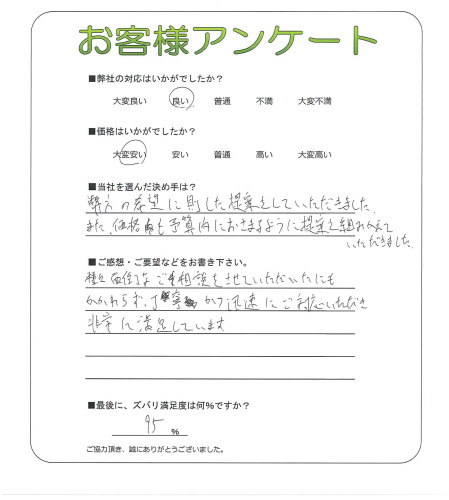 お客様アンケート
■弊社の対応はいかがでしたか？
大変良い 良い 普通 不満 大変不満
■価格はいかがでしたか？
大変安い 安い 普通 高い 大変高い
■当社を選んだ決め手は？
弊方の希望に則した提案をしていただきました。
また、価格も予算内におさまるように提案を組みかえて
いただきました
■ご感想・ご要望などをお書き下さい。
種々面倒なご相談をさせていただいたにも
かかわらず、丁寧かつ迅速にご対応いただき
非常に満足しています
■最後に、ズバリ満足度は何%ですか？
95 %
ご協力頂き、誠にありがとうございました。